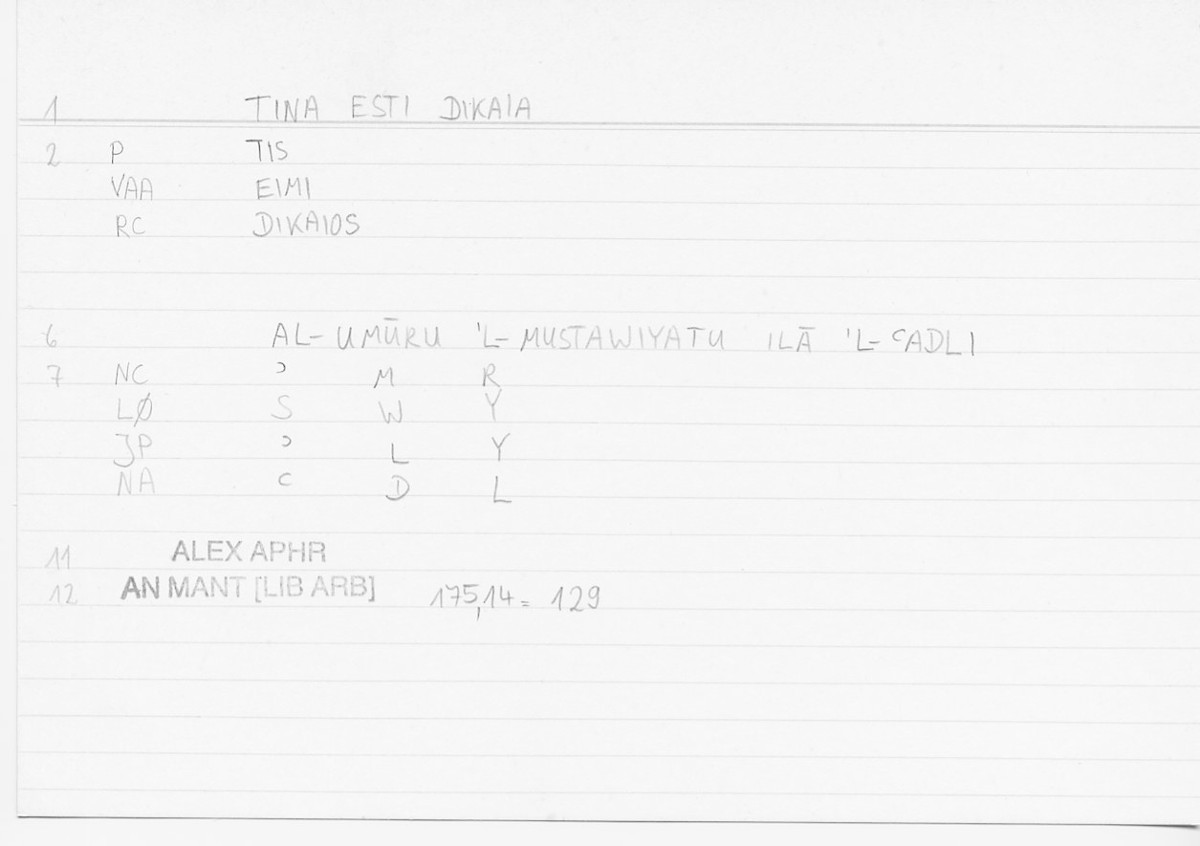 1 TINA ESTI DIKAIA
2 P TIS
VAA EIMI
RC DIKAIOS
6 AL- UMŪRU 'L- MUSTAWIYATU ILĀ 'L- ʿADLI
7 NC ʾ M R
LØ S W Y
JP ʾ L Y
NA ʿ D L
11 ALEX APHR
12 AN MANT [LIB ARB] 175,14 = 129